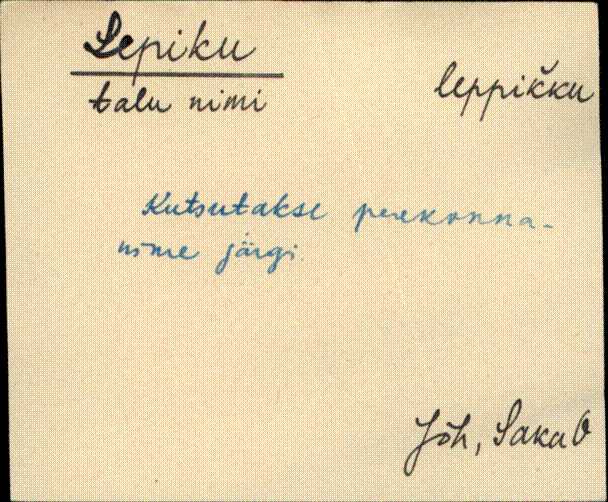 Lepiku
talu nimi
leppikku
Kutsutakse perekonna-
nime järgi.
Jõh, Saka O